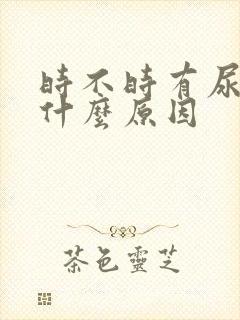 時不時有尿
什麼原因
茶色靈芝